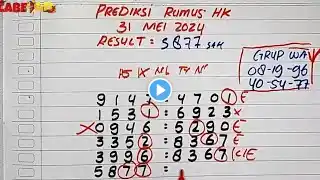 PREDIKSI RUMUS HK
31 MEI 2024
RESULT = 5877
GRUP WA
08-19-96
40-54-77
9147 : 4701 E
1531 : 6923 x
X 0946 : 5290 E
3352 : 8367 E
3996 : 8367
5877 =